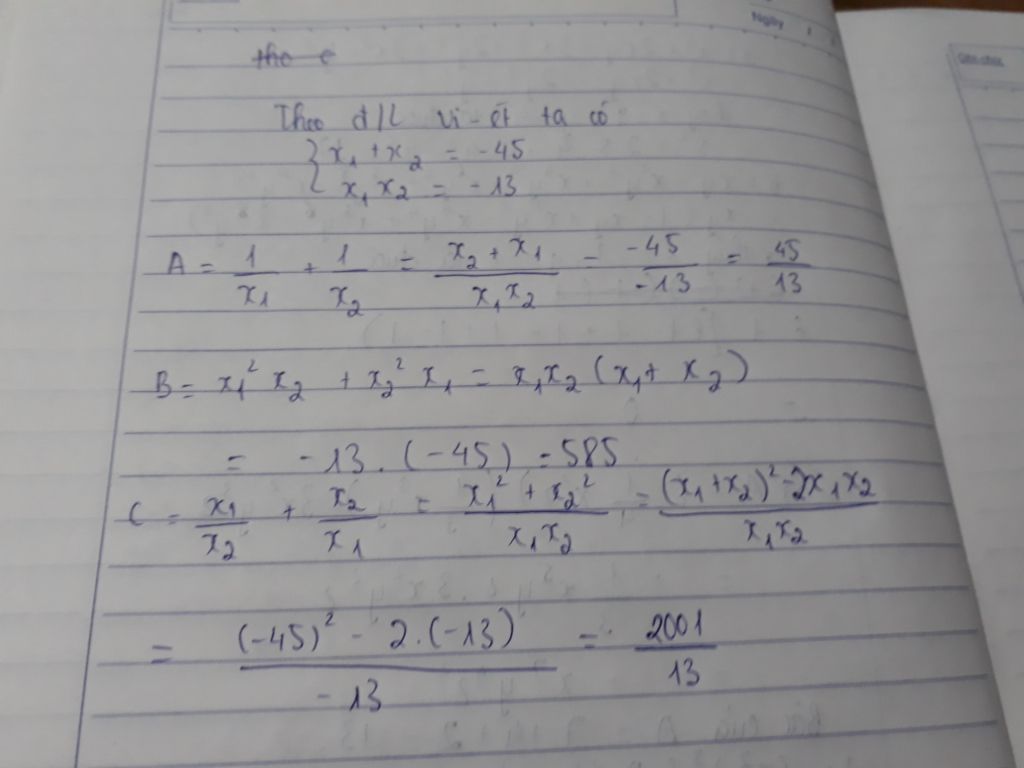 Ngày
Ghi chú
tho e
Theo đ/L vi-ét ta có
{ x₁ + x₂ = -45
x₁ x₂ = -13
A = 1/x₁ + 1/x₂ = (x₂ + x₁)/(x₁x₂) = -45/-13 = 45/13
B = x₁² x₂ + x₂² x₁ = x₁x₂ (x₁ + x₂)
= -13 . (-45) = 585
C = x₁/x₂ + x₂/x₁ = (x₁² + x₂²)/(x₁x₂) = ((x₁ + x₂)² - 2x₁x₂)/(x₁x₂)
= ((-45)² - 2.(-13))/-13 = 2001/13